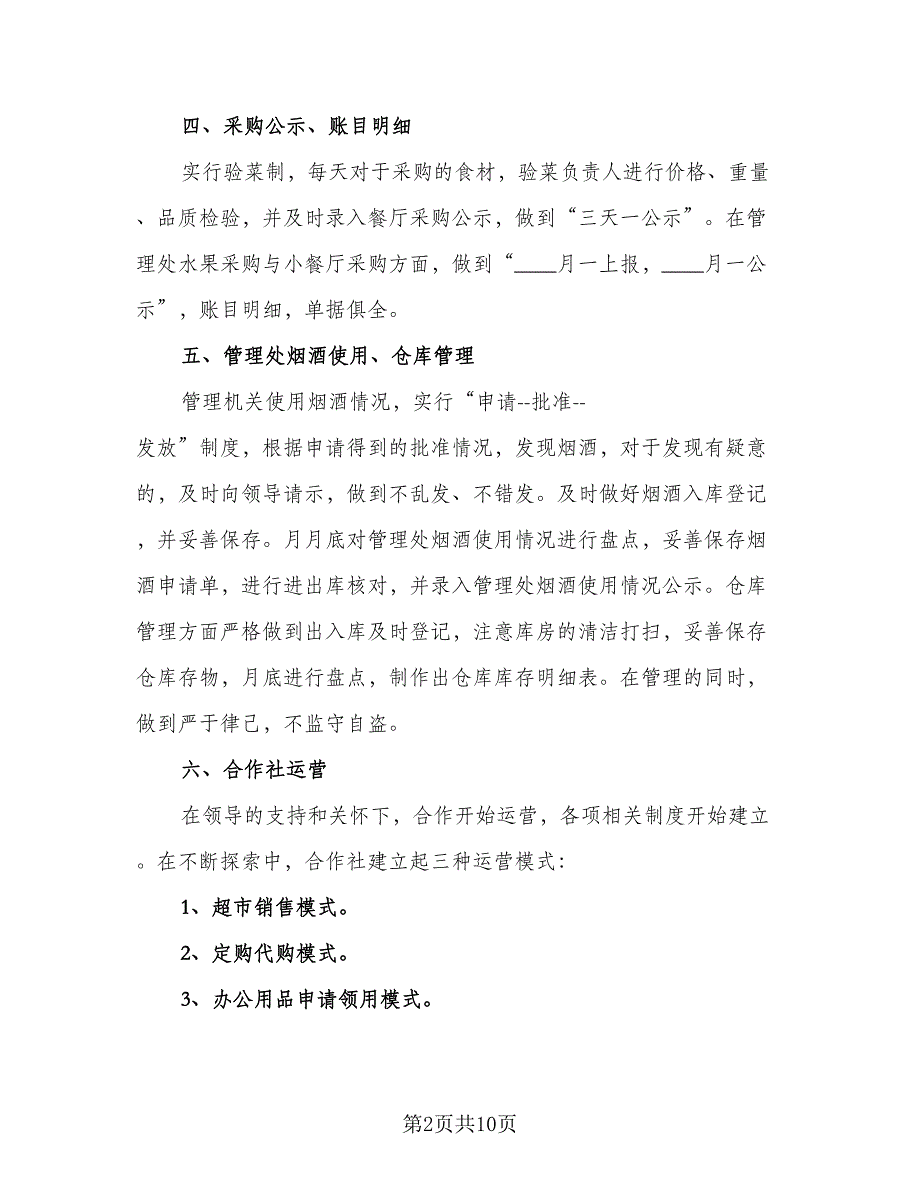 四、采购公示、账目明细
实行验菜制，每天对于采购的食材，验菜负责人进行价格、重量
、品质检验，并及时录入餐厅采购公示，做到“三天一公示”。在管
理处水果采购与小餐厅采购方面，做到“____月一上报，____月一公
示”，账目明细，单据俱全。
五、管理处烟酒使用、仓库管理
管理机关使用烟酒情况，实行“申请--批准--
发放”制度，根据申请得到的批准情况，发现烟酒，对于发现有疑意
的，及时向领导请示，做到不乱发、不错发。及时做好烟酒入库登记
，并妥善保存。月月底对管理处烟酒使用情况进行盘点，妥善保存烟
酒申请单，进行进出库核对，并录入管理处烟酒使用情况公示。仓库
管理方面严格做到出入库及时登记，注意库房的清洁打扫，妥善保存
仓库存物，月底进行盘点，制作出仓库库存明细表。在管理的同时，
做到严于律己，不监守自盗。
六、合作社运营
在领导的支持和关怀下，合作开始运营，各项相关制度开始建立
。在不断探索中，合作社建立起三种运营模式：
1、超市销售模式。
2、定购代购模式。
3、办公用品申请领用模式。
第2页共10页